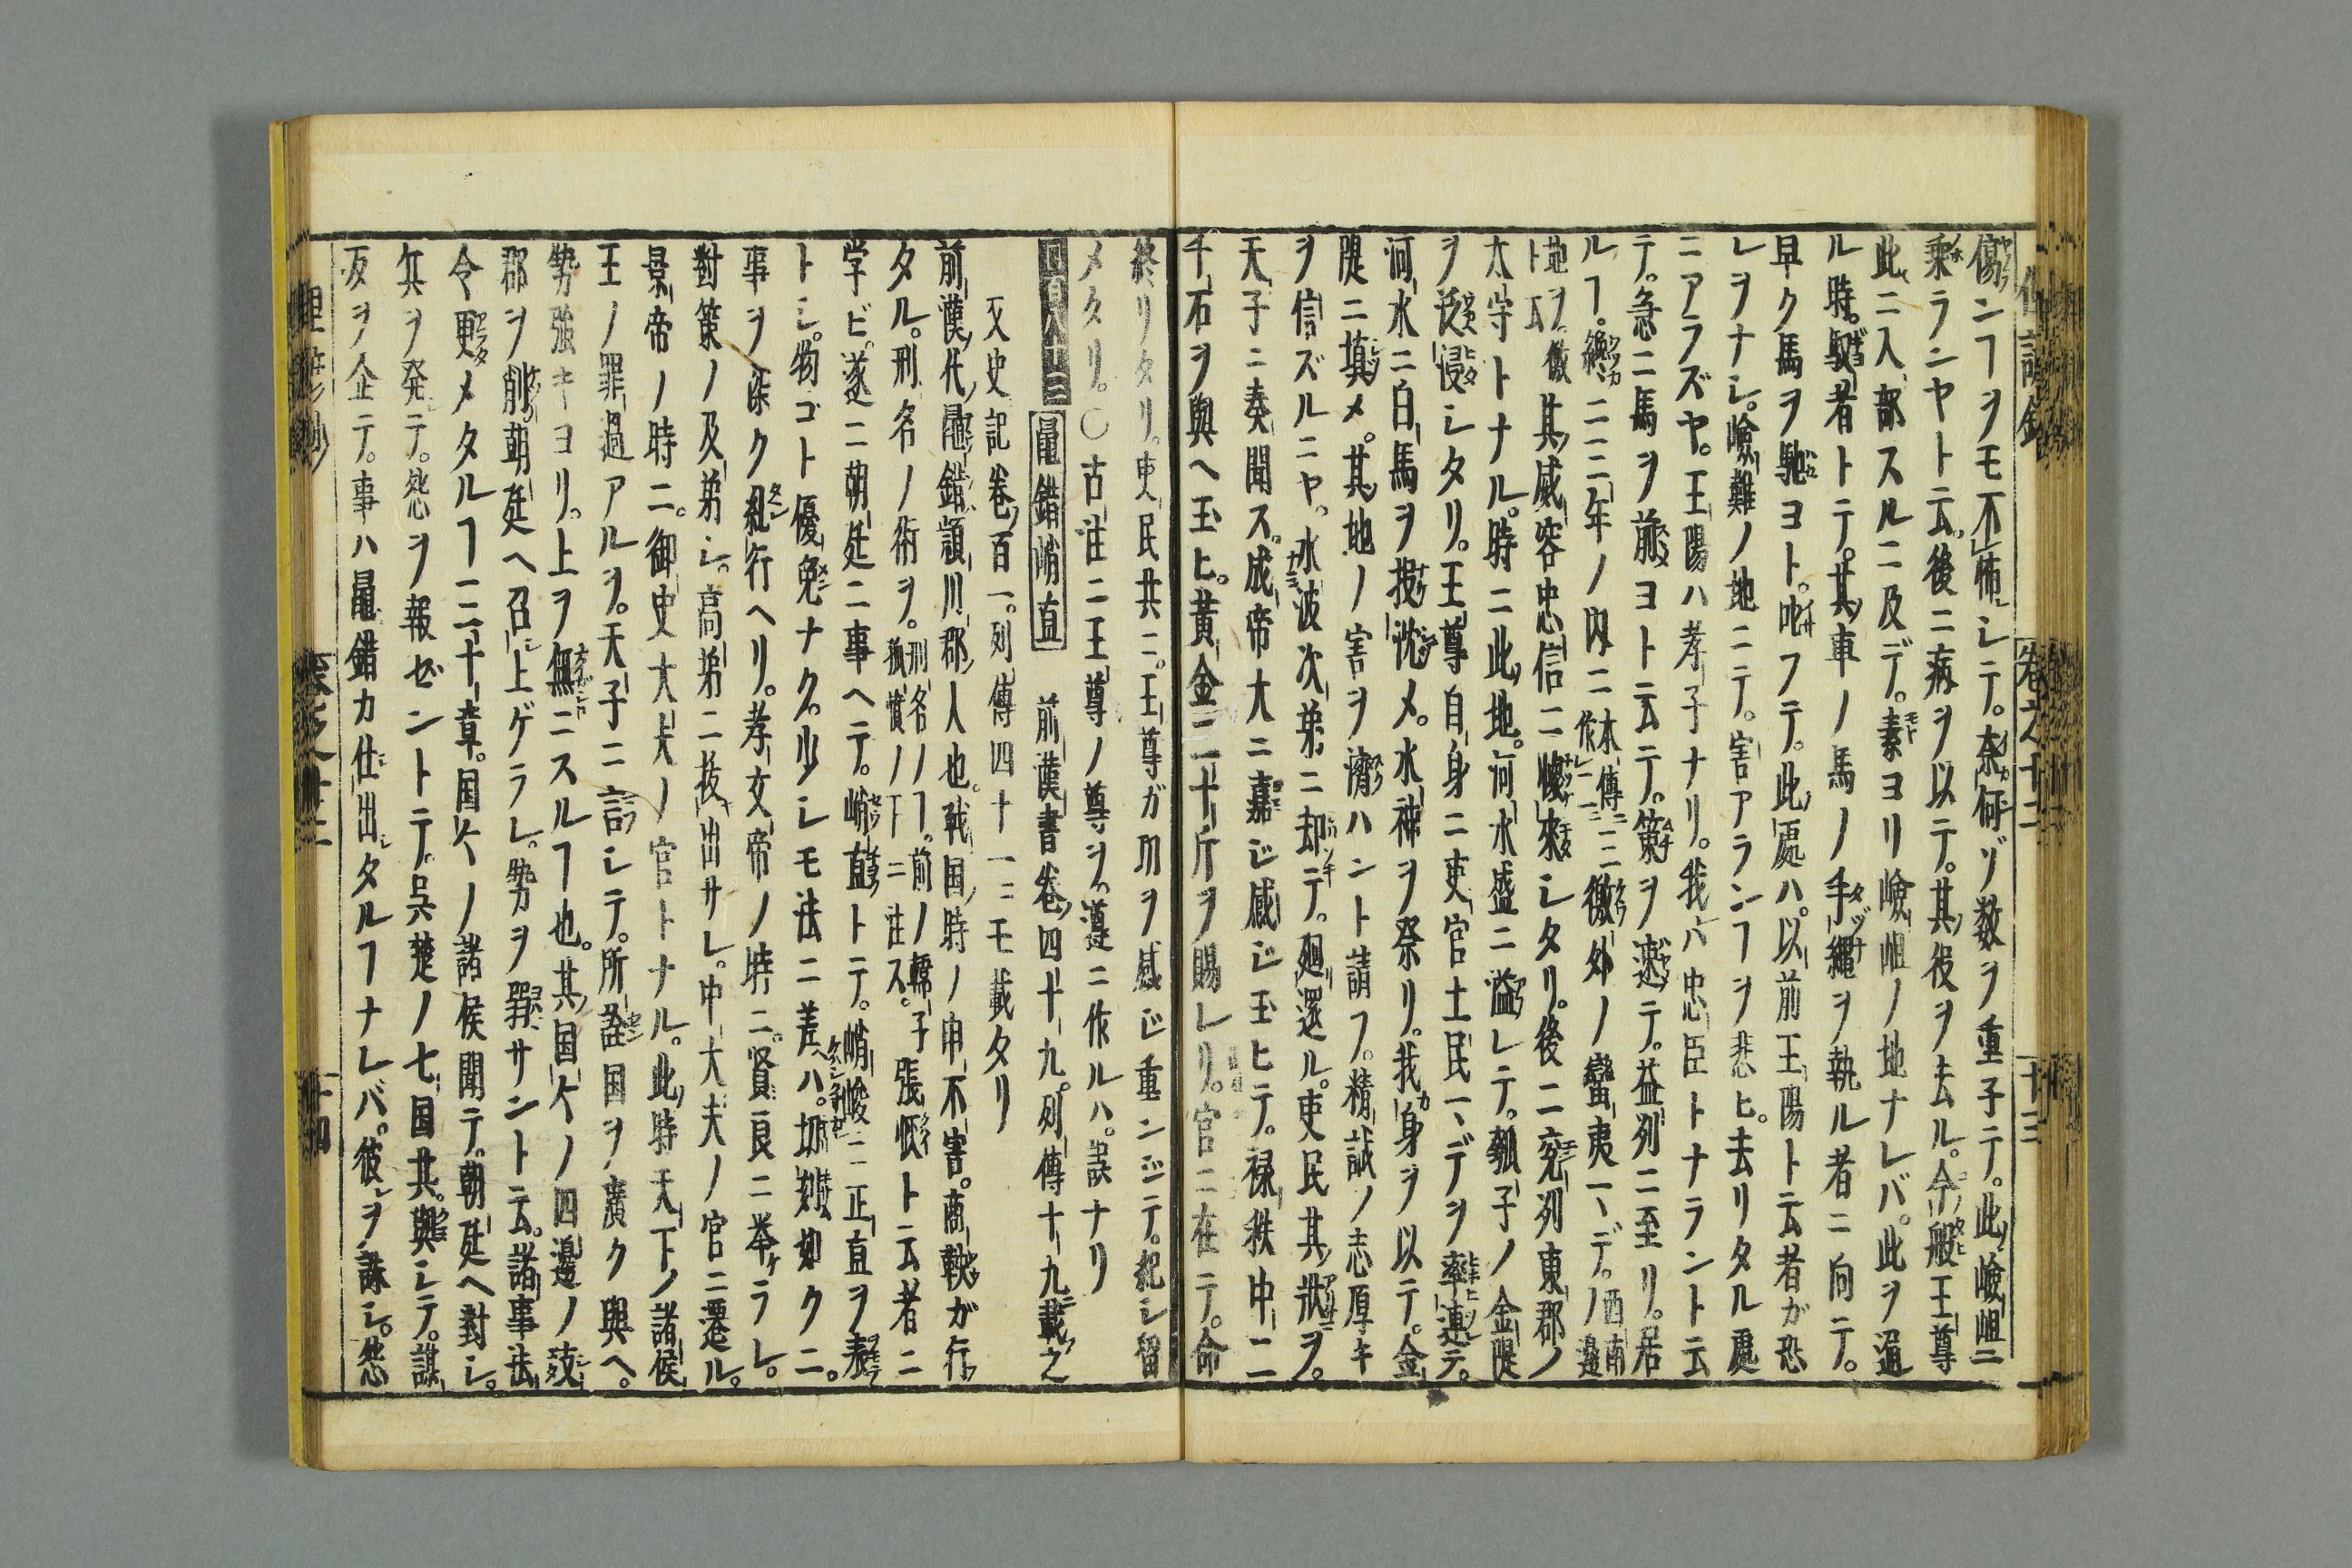 傷ンヿヲモ不怖シテ。奈何ゾ数ヲ重子テ。此嶮岨ニ
乗ランヤト云。後ニ病ヲ以テ。其役ヲ去ル。今般王尊
此ニ入部スルニ及デ。素ヨリ嶮岨ノ地ナレバ。此ヲ過
ル時。馭者トテ。其車ノ馬ノ手縄ヲ執ル者ニ向テ。
早ク馬ヲ馳ヨト。叱フテ。此處ハ。以前王陽ト云者ガ恐
レヲナシ。嶮難ノ地ニテ。害アランヿヲ悲ヒ。去リタル處
ニアラズヤ。王陽ハ孝子ナリ。我ハ忠臣トナラント云
テ。急ニ馬ヲ前ヨト云テ。策ヲ速テ。益列ニ至リ。居
ルヿ。纔ニ二三年ノ内ニ本傳ニ二作徼外ノ蠻夷マデ。西南ノ邊
地ヲ徼ト云其威容忠信ニ懐来シタリ。後ニ兗列東郡ノ
太守トナル。時ニ此地。河水盛ニ溢レテ。瓠子ノ金隄
ヲ浸シタリ。王尊自身ニ吏官士民マデヲ率連テ。
河水ニ白馬ヲ投沈メ。水神ヲ祭リ。我身ヲ以テ。金
隄ニ填メ。其地ノ害ヲ濟ハント請フ。精誠ノ志厚キ
ヲ信ズルニヤ。水波次第ニ却テ。廻還ル。吏民其状ヲ。
天子ニ奏聞ス。成帝大ニ嘉ジ感ジ玉ヒテ。禄秩中二
千石ヲ與ヘ玉ヒ。黄金二十斤ヲ賜レリ。官ニ在テ。命
終リタリ。吏民共ニ。王尊ガ功ヲ感ジ重ンジテ。紀シ留
メタリ。〇古注ニ王尊ノ尊ヲ。遵ニ作ルハ。誤ナリ
鼂錯峭直　前漢書巻四十九。列傳十九載之
又史記巻百一。列傳四十一ニモ載タリ
前漢代鼂錯頴川郡人也。戦国時ノ申不害。商鞅ガ行
タル。刑名ノ術ヲ。刑名ノヿ。前ノ孤憤ノ下ニ注ス。張恢ト云者ニ
学ビ。遂ニ朝廷ニ事ヘテ。峭直トテ。峭峻ニ正直ヲ表
トシ。物ゴト優免ナク。少シモ法ニ差ハ。切刻如クニ。
事ヲ深ク糺行ヘリ。孝文帝ノ時ニ。賢良ニ挙ラレ。
對策ノ及第シ。高第ニ抜出サレ。中大夫ノ官ニ遷ル。
景帝ノ時ニ。御史大夫ノ官トナル。此時天下ノ諸侯
王ノ罪過アルヲ。天子ニ言シテ。所詮国ヲ廣ク與ヘ。
勢強キヨリ。上ヲ無ニスルヿ也。其国々ノ四邊ノ支
郡ヲ削。朝廷ヘ召上ゲラレ。勢ヲ弱サント云。諸事法
令更メタルヿ三十章。国々ノ諸侯聞テ。朝廷ヘ對シ。
兵ヲ発テ。怨ヲ報ゼントテ。呉楚ノ七国共。與シテ。謀
反ヲ企テ。事ハ鼂錯カ仕出タルヿナレバ。彼ヲ誅シ。怨
巻之十二
十三